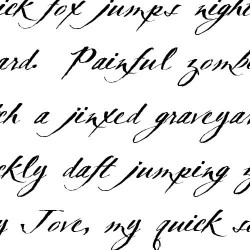 ick fox jumps nigh
ard. Painful zomb
ch a jinxed graveyar
ckly daft jumping z
y Jove, my quick s